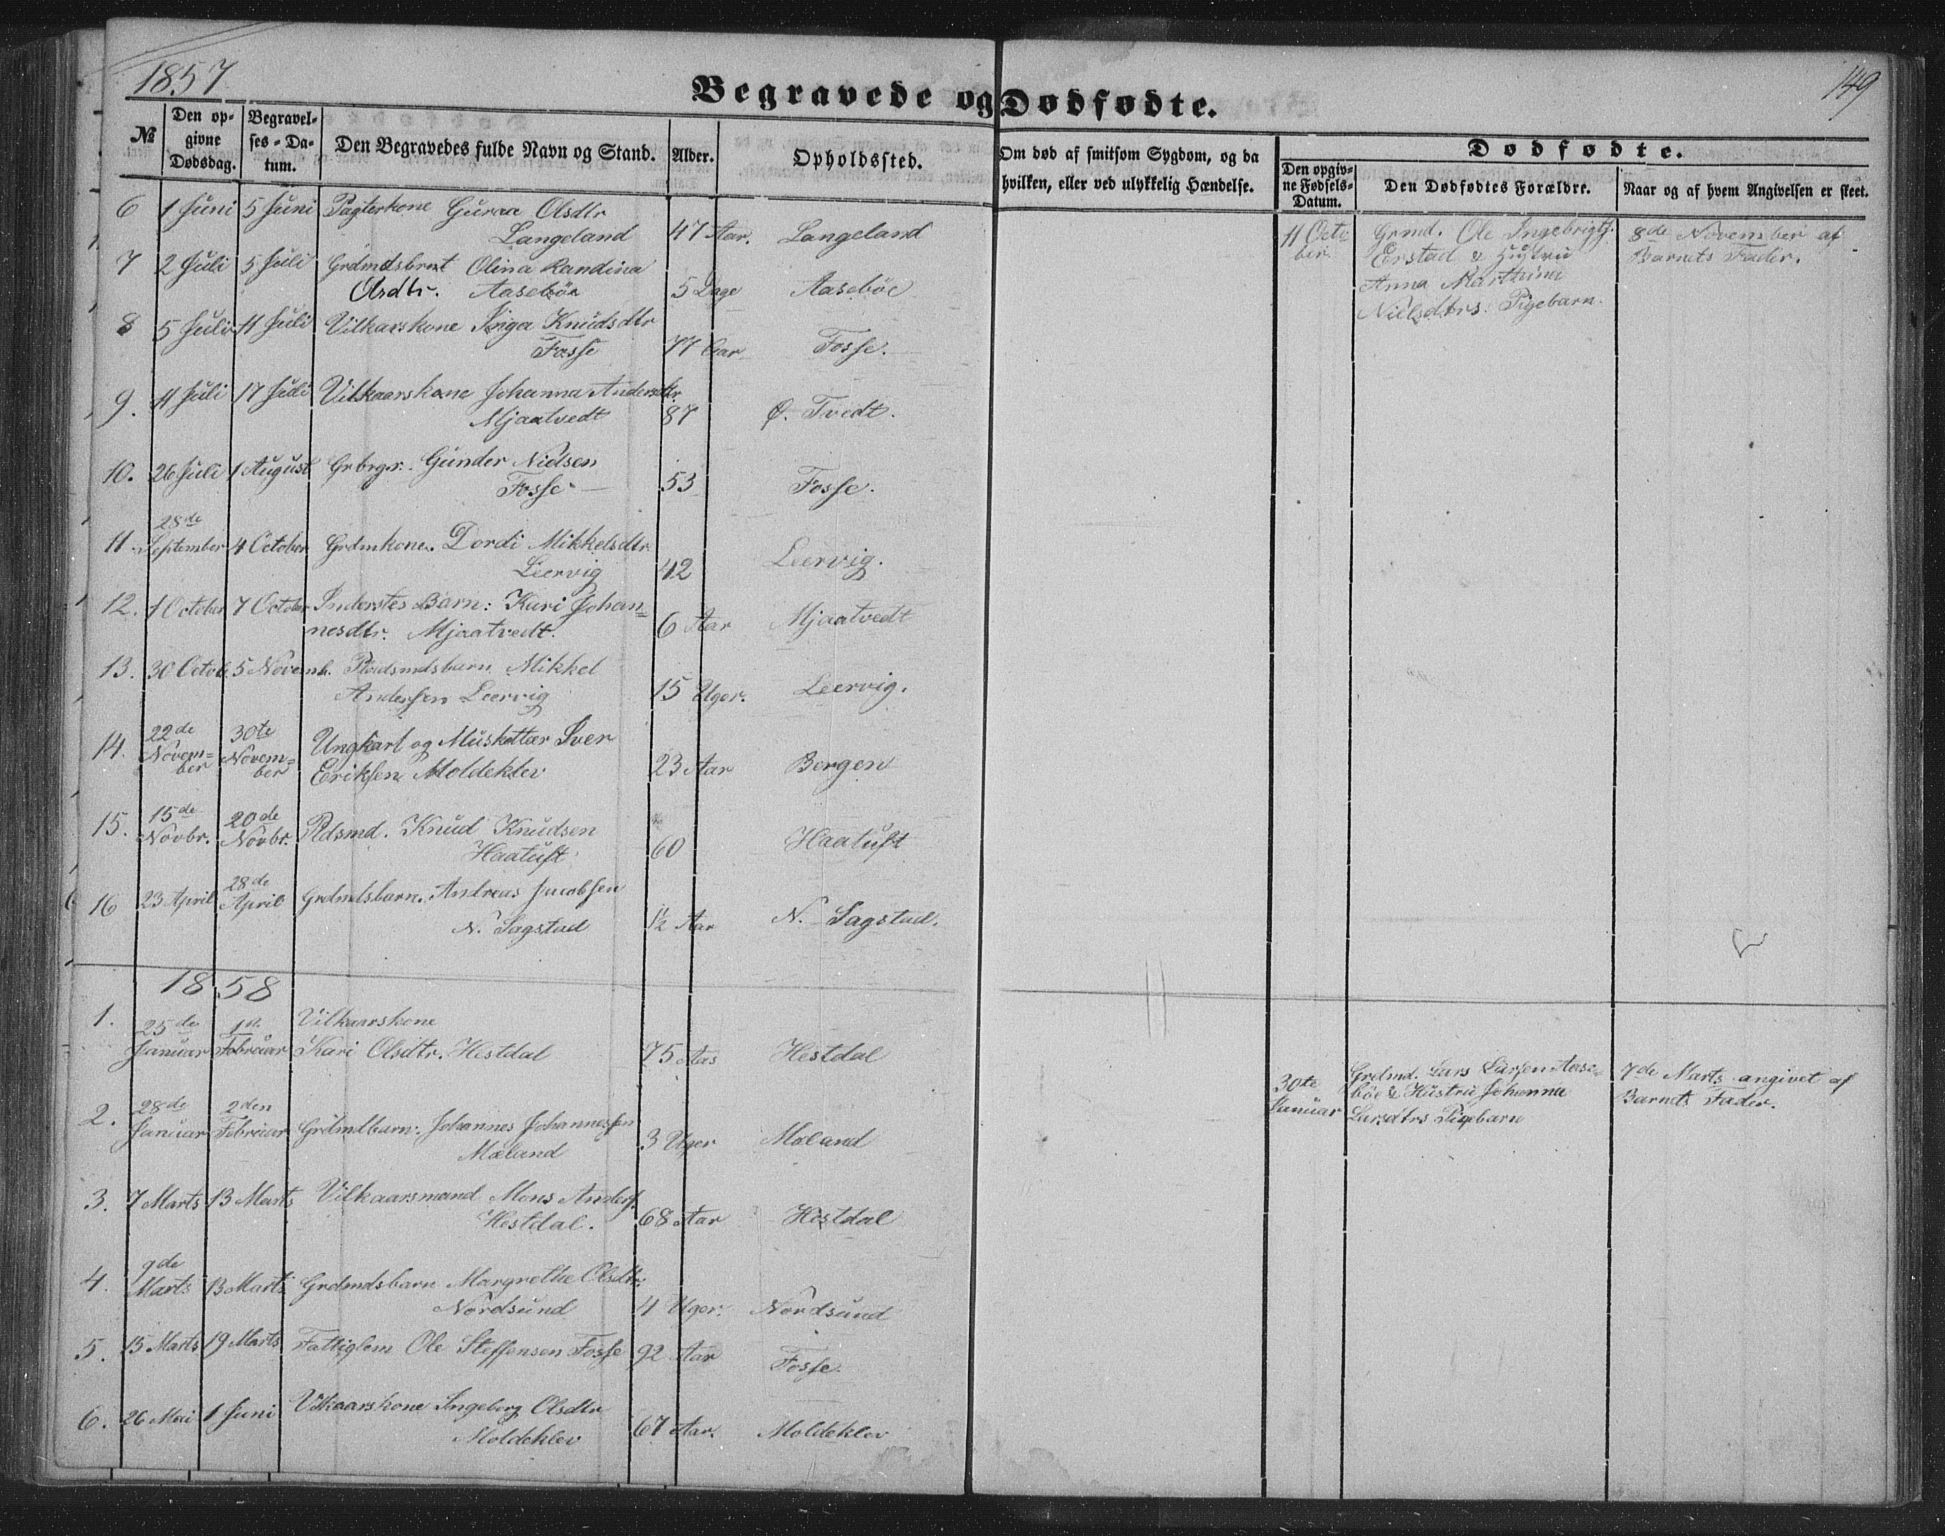 1857
149
Begravede og Dødfødte.
№
Den op-
givne
Dødsdag.
Begravel-
ses-Da-
tum.
Den Begravedes fulde Navn og Stand.
Alder.
Opholdssted.
Om død af smitsom Sygdom, og da
hvilken, eller ved ulykkelig Hændelse.
Dødfødte.
Den opgiv-
ne Fødsels-
Datum.
Den Dødfødtes Forældre.
Naar og af hvem Angivelsen er skeet.
6 1 Juni 5 Juni Pagterkone Guroa Olsdtr
Langeland 47 Aar. Langeland
7 2 Juli 5 Juli Grdmdsbrnt Olina Randina
Olsdtr. Aasebøe 5 Dage Aasebøe
8 5 Juli 11 Juli Vilkarskone Inga Knudsdtr
Fosse 77 Aar Fosse.
9. 11 Juli 17 Juli Vilkaarskone Johanna Andersdtr.
Mjaatvedt 87 Ø. Tvedt.
10. 26 Juli 1 August Grbrgr. Gunder Nielsen
Fosse 53 Fosse.
11 28de
September 4 October Grdmkone. Dordi Mikkelsdtr
Leervig 42 Leervig.
12. 1 October 7 October Inderstes Barn: Kari Johan=
nesdtr. Mjaatvedt. 6 Aar Mjaatvedt
13. 30 Octob. 5 Novemb. Pladsmdsbarn Mikkel
Andersen Leervig 15 Uger. Leervig.
14. 22de
Novem=
ber 30te
Novem=
ber Ungkarl og Musketær Iver
Eriksen Moldeklev 23 Aar Bergen
15. 15de
Novbr. 20de
Novbr. Pldsmd. Knud Knudsen
Haatuft 60 Haatuft
16 23 April 28de
April Grdmdsbarn. Andreas Jacobsen
N. Sagstad 1½ Aar N. Sagstad.
11 Octo
ber
Grmd. Ole Ingebrigts.
Erstad & Hustru
Anna Marthina
Nielsdtrs: Pigebarn.
8de November af
Barnets Fader.
1858
1. 25de
Januar 1st
Februar Vilkaarskone
Kari Olsdtr. Hestdal 75 Aar Hestdal
2. 28de
Januar 2den
Februar Grdmdbarn: Johannes Johannessen
Mæland 3 Uger Mæland
3. 7 Marts 13 Marts Vilkaarsmand Mons Anders.
Hestdal. 68 Aar Hestdal
4. 9de
Marts 13 Marts Grdmdsbarn Margrethe Olsdtr:
Nordsund 4 Uger. Nordsund
5. 15 Marts 19 Marts Fattiglem Ole Steffensen Fosse 92 Aar Fosse.
6. 26 Mai 1 Juni Vilkaarskone Ingeborg Olsdtr
Moldeklev 67 Aar. Moldeklev
30te
Januar
Grdmd. Lars Larsen Aase-
bøe & Hustru Johanna
Larsdtrs Pigebarn
7de Marts angivet af
Barnets Fader.